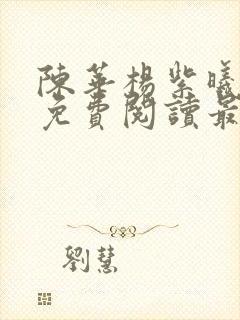 陳華楊紫曦
免費閱讀最
劉慧